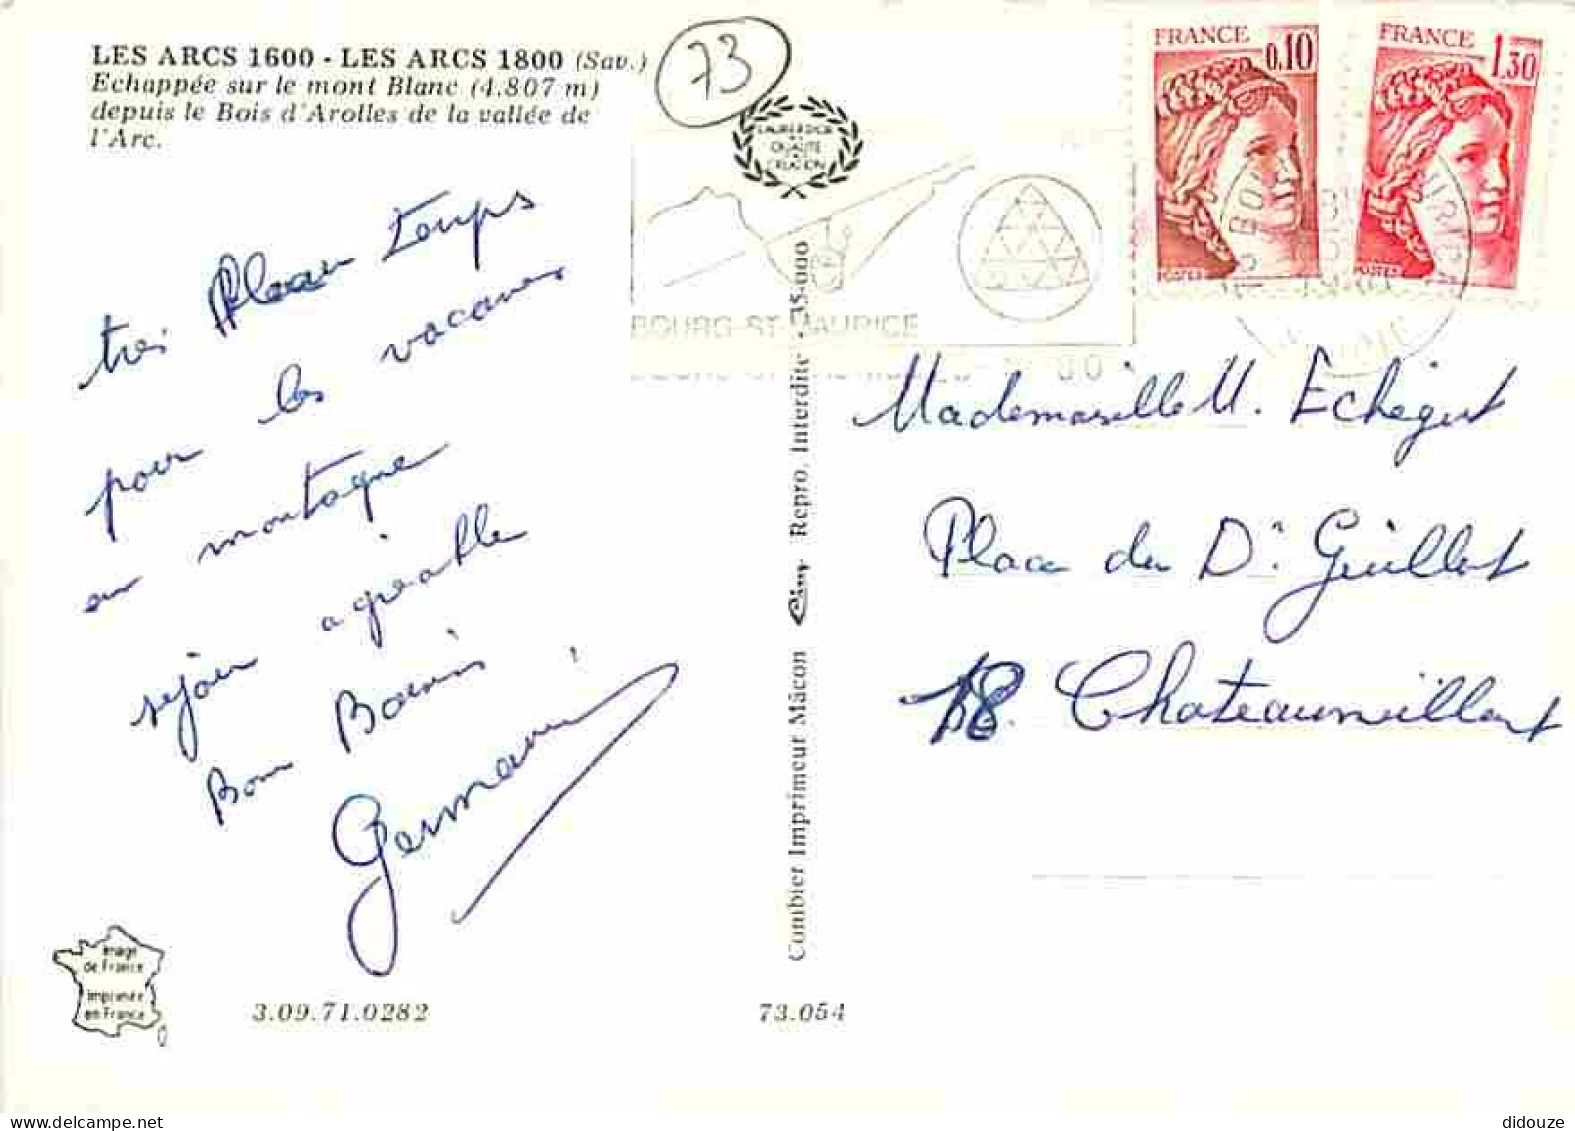 LES ARCS 1600 - LES ARCS 1800 (Sav.)
Echappée sur le mont Blanc (4.807 m)
depuis le Bois d'Arolles de la vallée de
l'Arc.
73
LAURIER D'OR
QUALITÉ
CRÉATION
FRANCE
0,10
POSTES
FRANCE
1,30
POSTES
BOURG-ST-MAURICE
très Beau temps
pour les vacances
en montagne
séjour agréable
Bons Baisers
Germaine
Mademoiselle M. Echégut
Place du Dr Guillot
18. Chateaumeillant
Combier Imprimeur Mâcon Cim Repro. Interdite - 35-000
Image
de France
imprimée
en France
3.09.71.0282
73.054
didouze